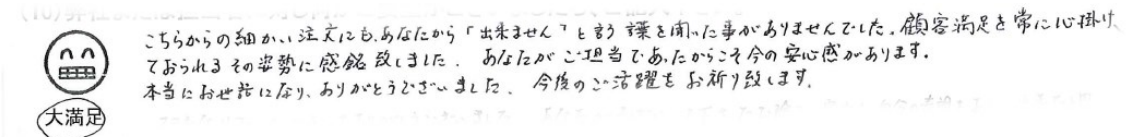 こちらからの細かい注文にも、あなたから「出来ません」と言う言葉を聞いた事がありませんでした。顧客満足を常に心掛け
ておられるその姿勢に感銘致しました。あなたがご担当であったからこそ今の安心感があります。
本当にお世話になり、ありがとうございました。今後のご活躍をお祈り致します。
大満足